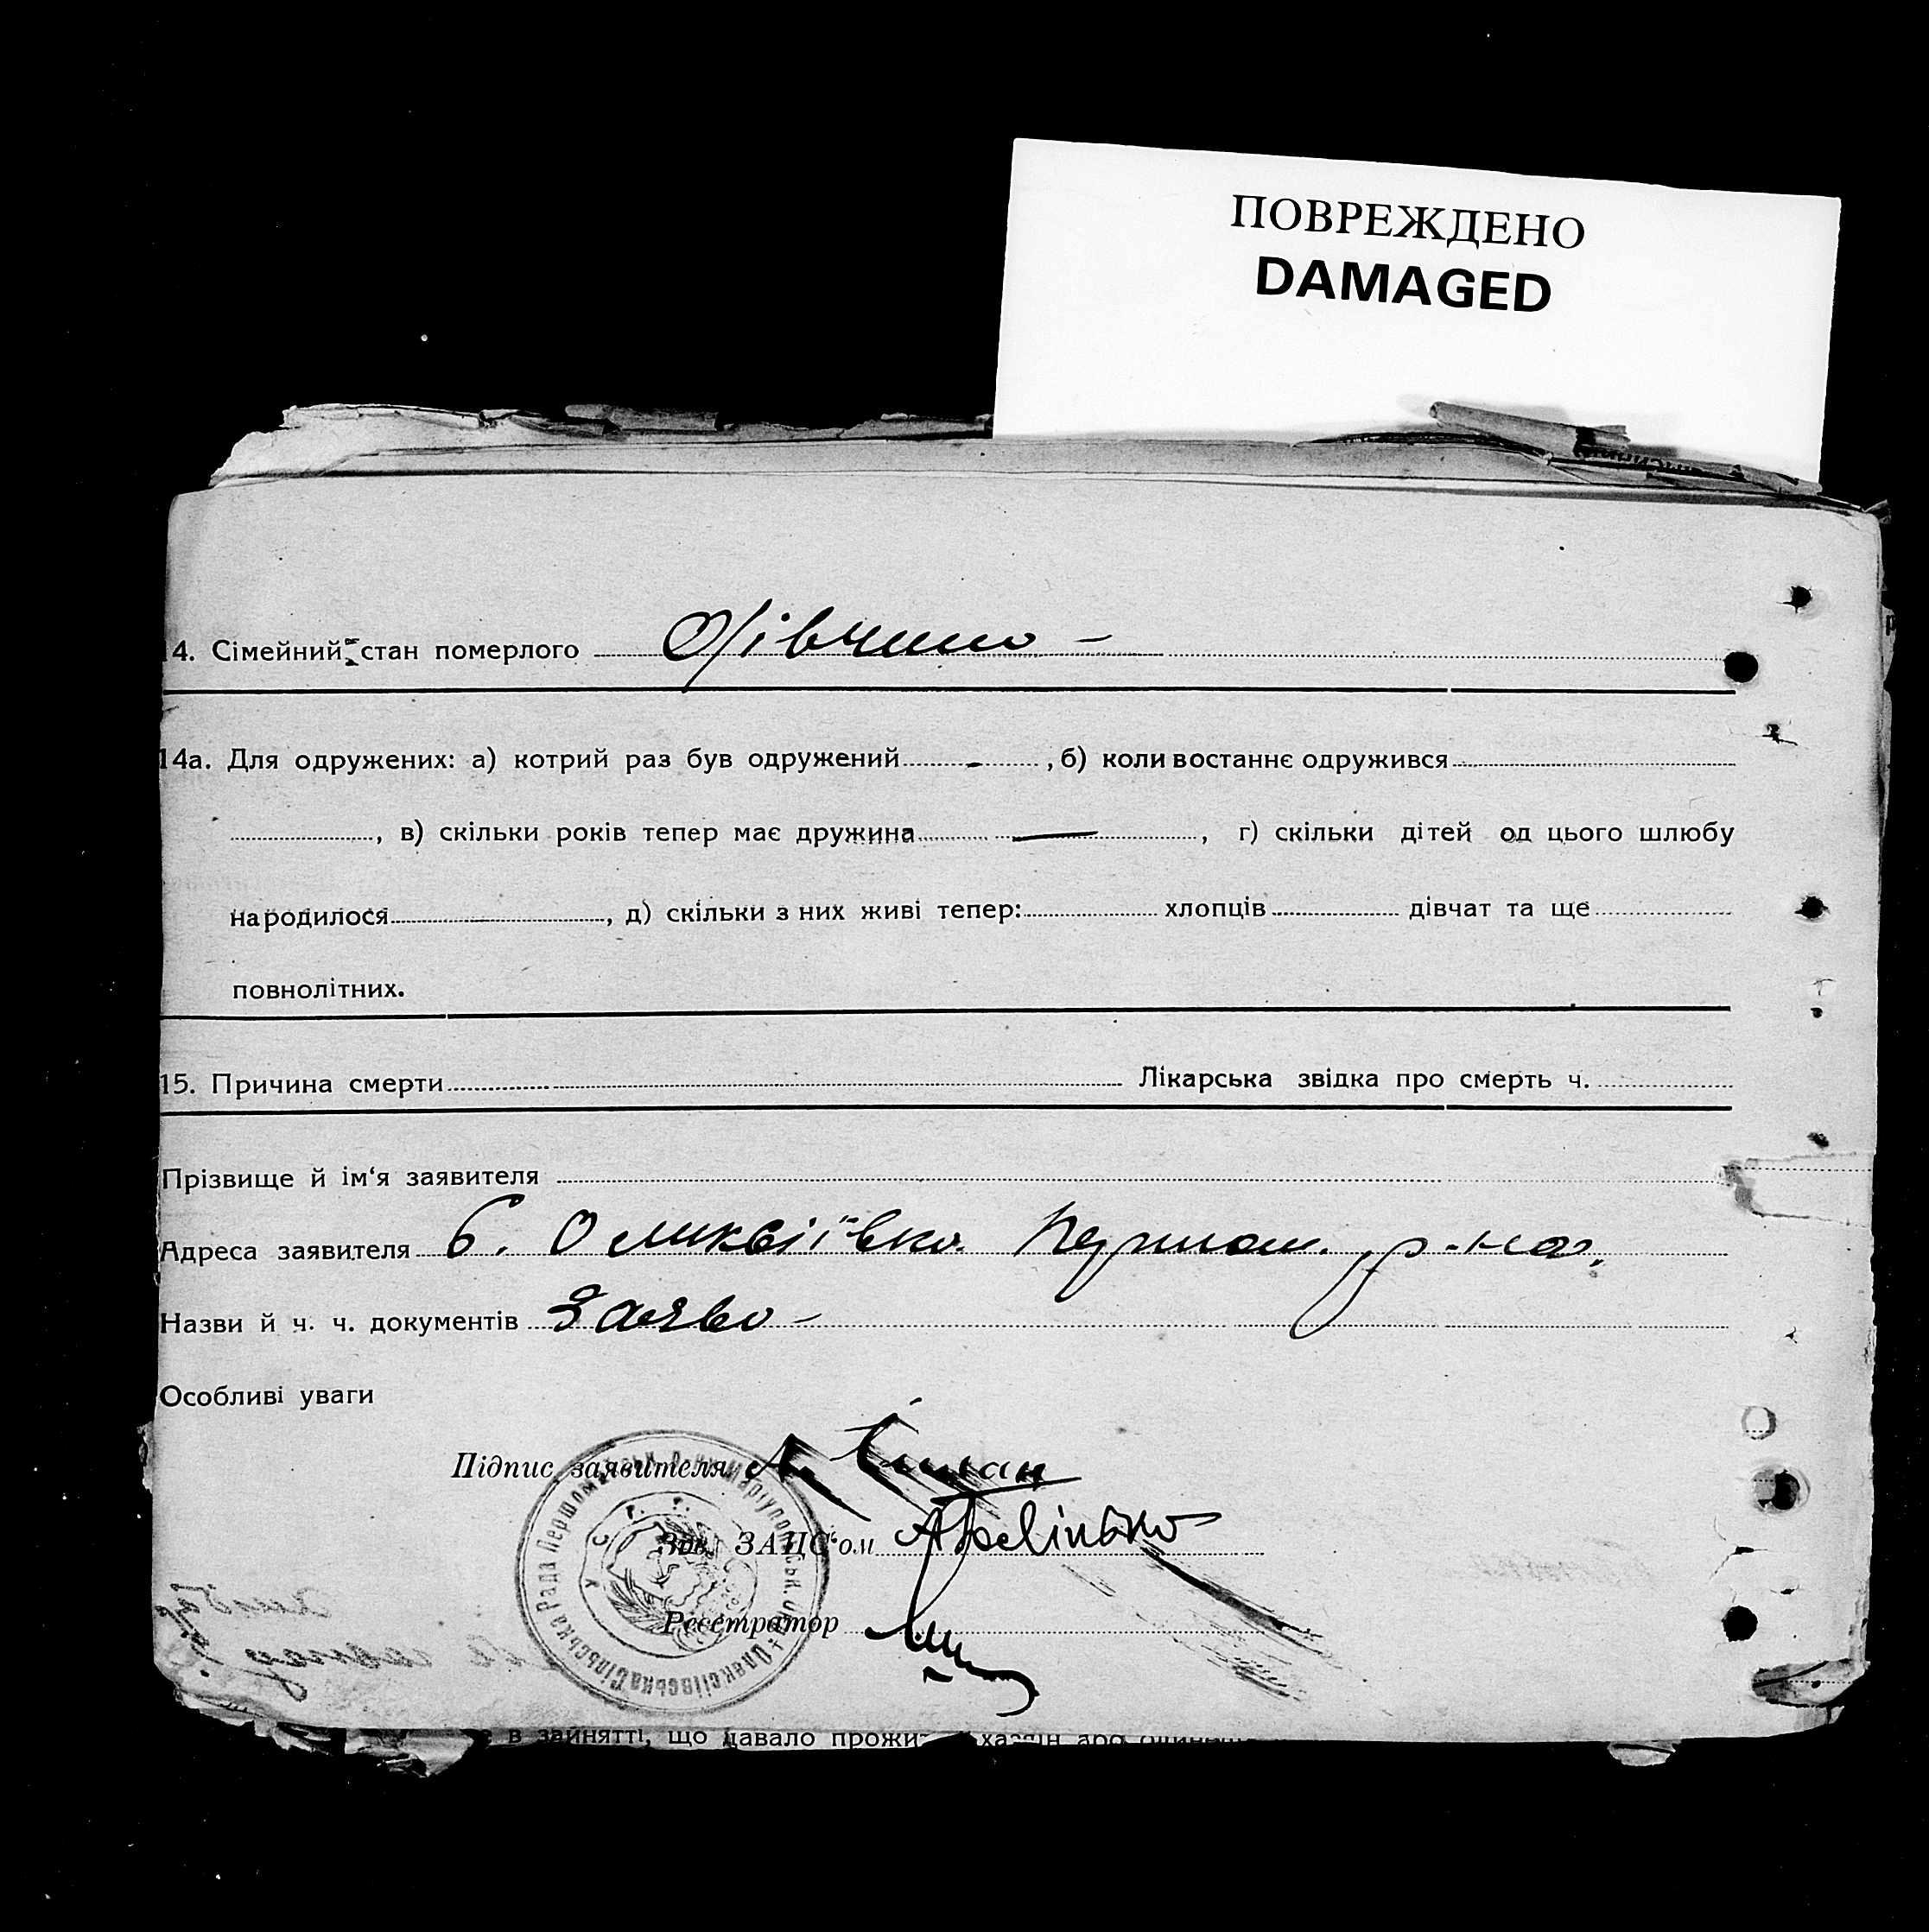 ПОВРЕЖДЕНО
DAMAGED
14. Сімейний стан померлого Дівчина -
14а. Для одружених: а) котрий раз був одружений - , б) коли востаннє одружився
, в) скільки років тепер має дружина — , г) скільки дітей од цього шлюбу
народилося , д) скільки з них живі тепер: хлопців дівчат та ще
повнолітних.
15. Причина смерти Лікарська звідка про смерть ч.
Прізвище й ім'я заявителя
Адреса заявителя р-на,
Назви й ч. ч. документів Заява -
Особливі уваги
Підпис заявителя А.
Зав. ЗАПС'ом
Реєстратор
Олексіївська Сільська Рада Першомайськ. Маріупольськ.
У С Р Р
в зайнятті, що давало